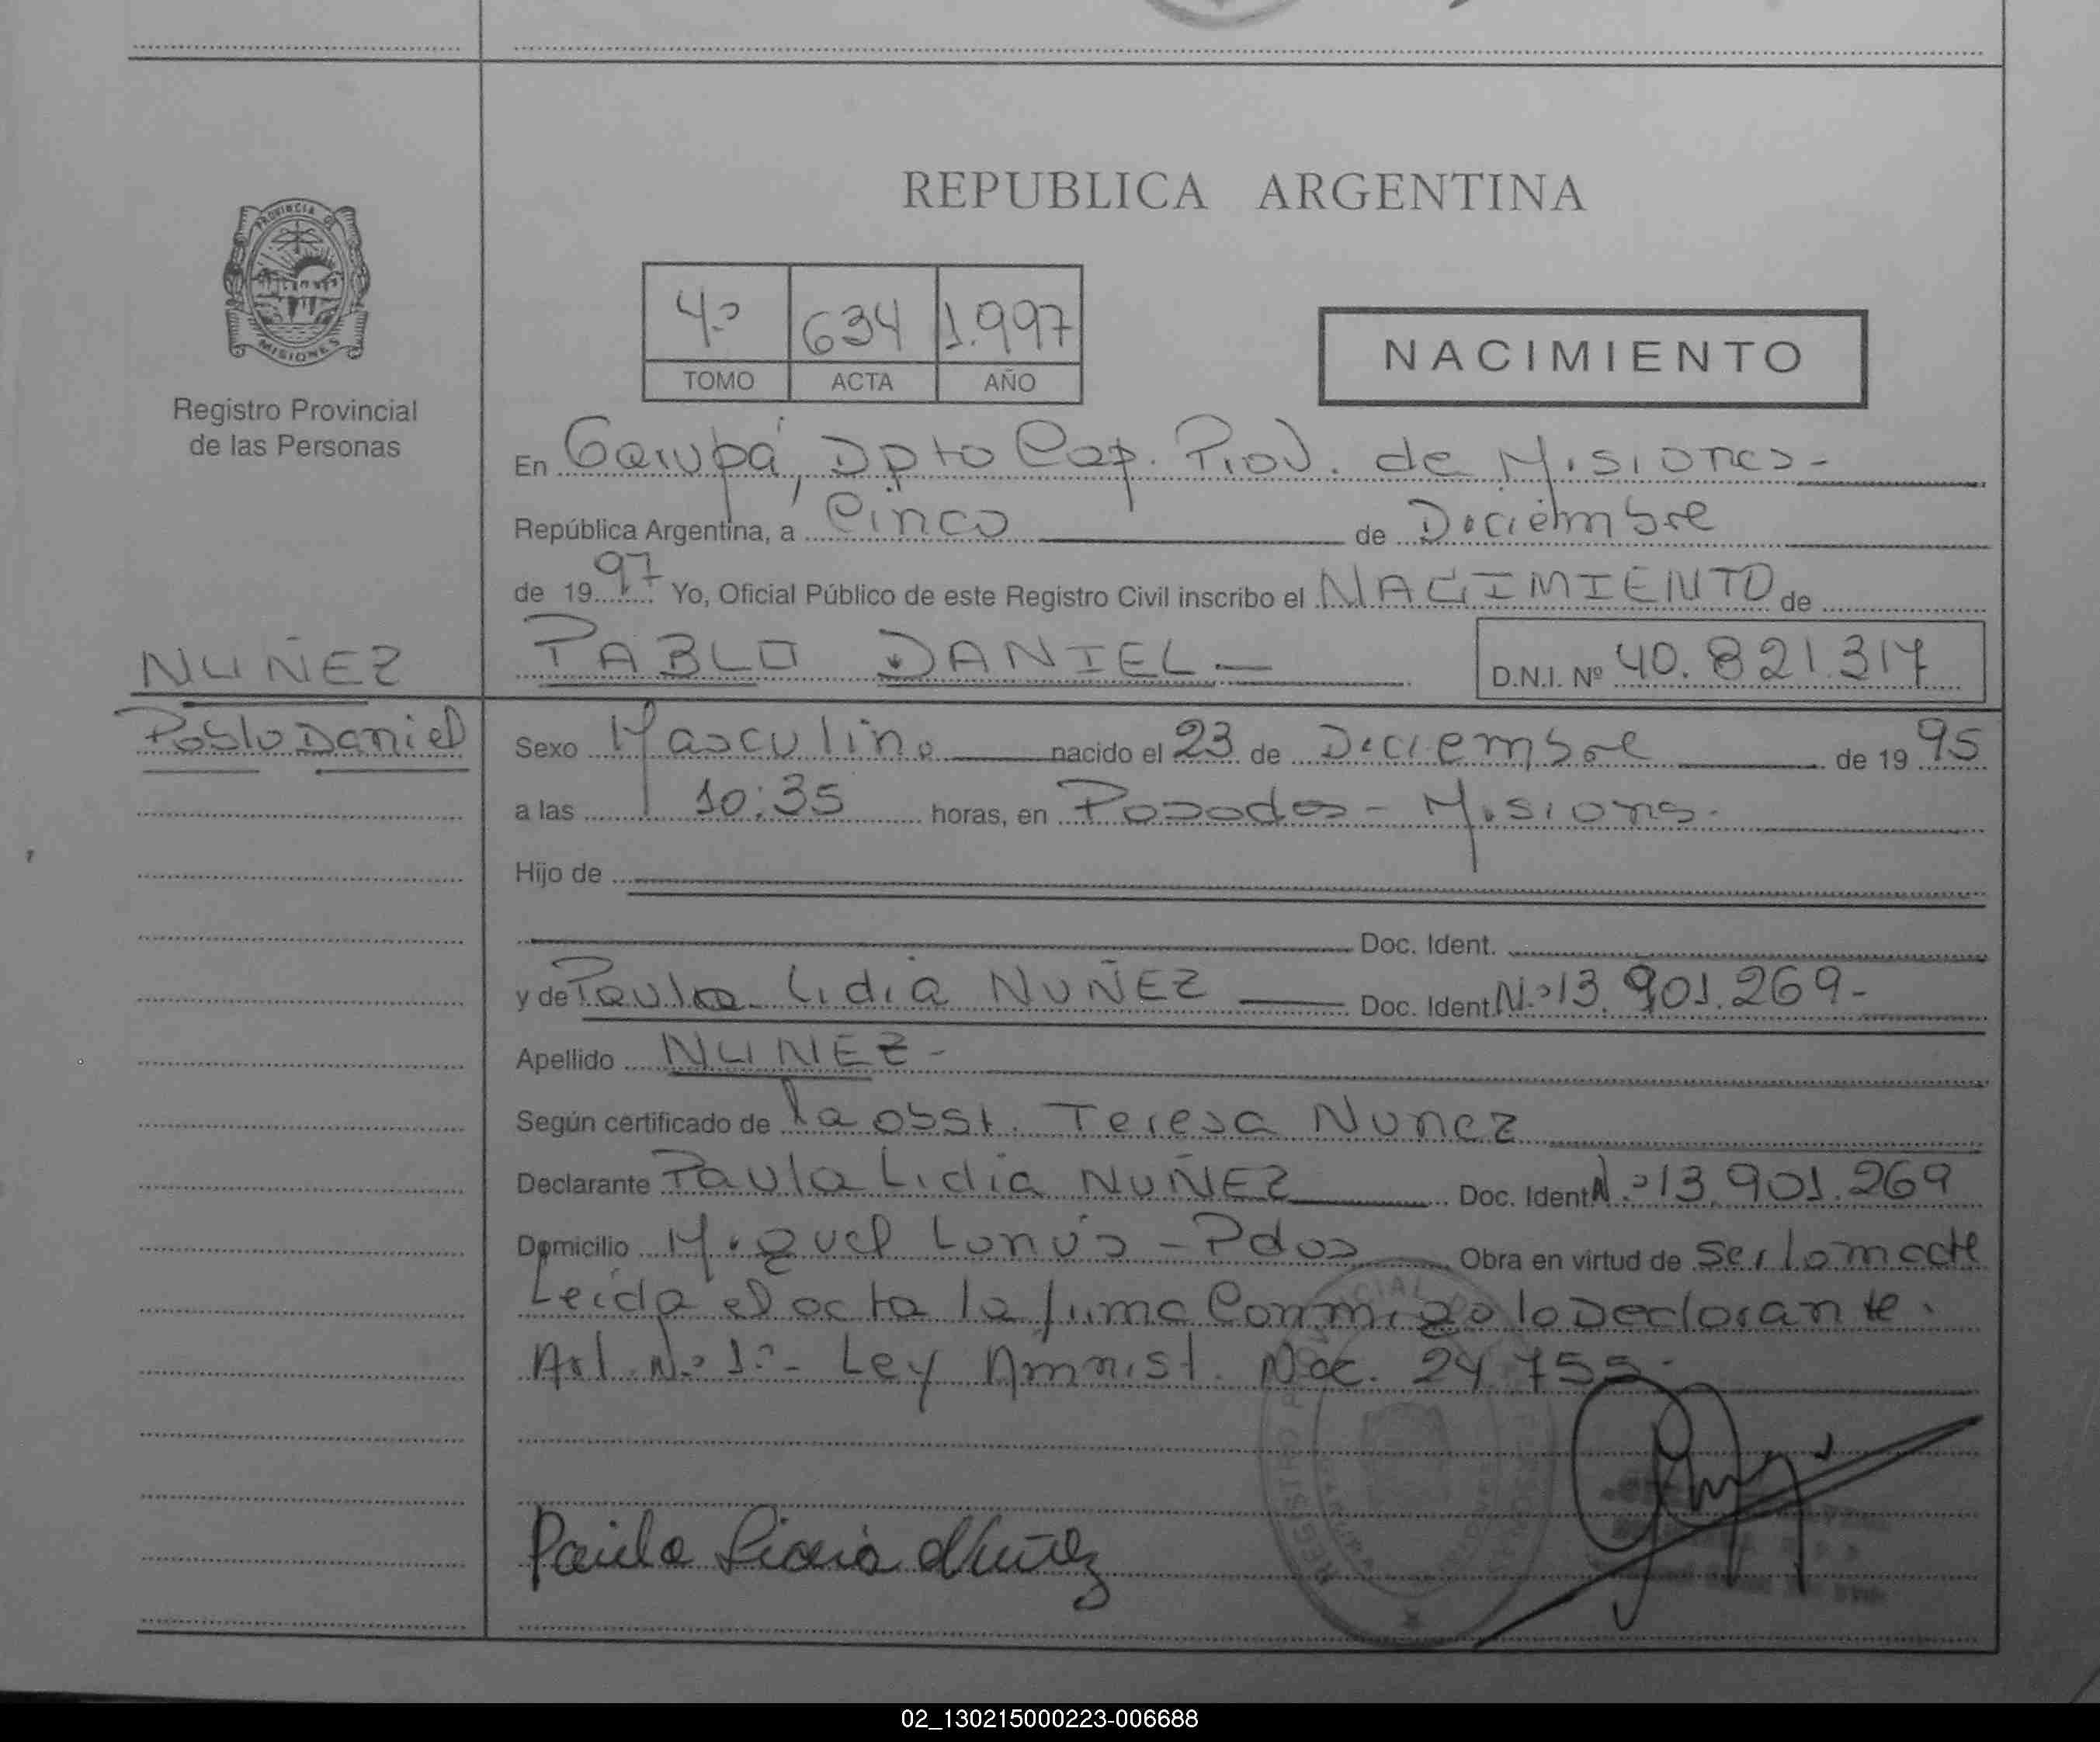 REPUBLICA ARGENTINA
PROVINCIA DE
MISIONES
Registro Provincial
de las Personas
4º 634 1.997
TOMO ACTA AÑO
NACIMIENTO
En Garupá, Dpto Cap. Prov. de Misiones-
República Argentina, a Cinco de Diciembre
de 1997 Yo, Oficial Público de este Registro Civil inscribo el NACIMIENTO de
NUÑEZ
Pablo Daniel
PABLO DANIEL- D.N.I. Nº 40.821.317
Sexo Masculino nacido el 23 de Diciembre de 1995
a las 10:35 horas, en Posadas - Misiones.
Hijo de
Doc. Ident.
y de Paula Lidia NUÑEZ Doc. Ident. N.º 13.901.269-
Apellido NUNEZ-
Según certificado de la obst. Teresa Nunez
Declarante Paula Lidia NUÑEZ Doc. Ident. N.º 13.901.269
Domicilio Miguel Lanús - Pdas Obra en virtud de ser la madre
Leida el acta la firma Conmigo la Declarante.
Art. N.º 1º- Ley Amnist. Nac. 24755-
REGISTRO PROVINCIAL DE
Paula Lidia Nuñez
02_130215000223-006688